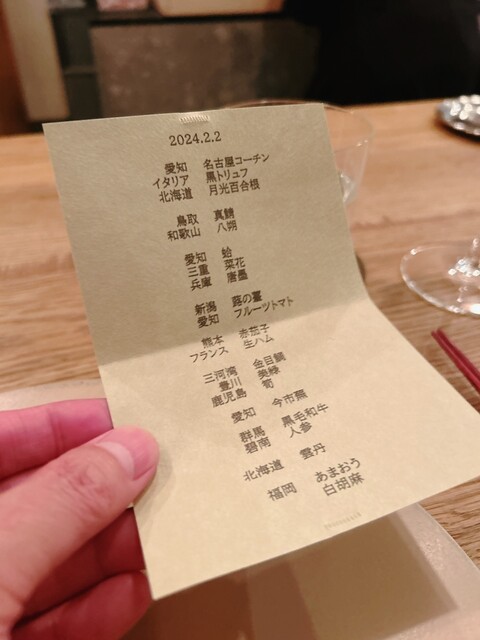 2024.2.2
愛知 名古屋コーチン
イタリア 黒トリュフ
北海道 月光百合根
鳥取 真鯖
和歌山 八朔
愛知 蛤
三重 菜花
兵庫 唐墨
新潟 蕗の薹
愛知 フルーツトマト
熊本 赤茄子
フランス 生ハム
三河湾 金目鯛
豊川 美緑
鹿児島 筍
愛知 今市蕪
群馬 黒毛和牛
碧南 人参
北海道 雲丹
福岡 あまおう
白胡麻